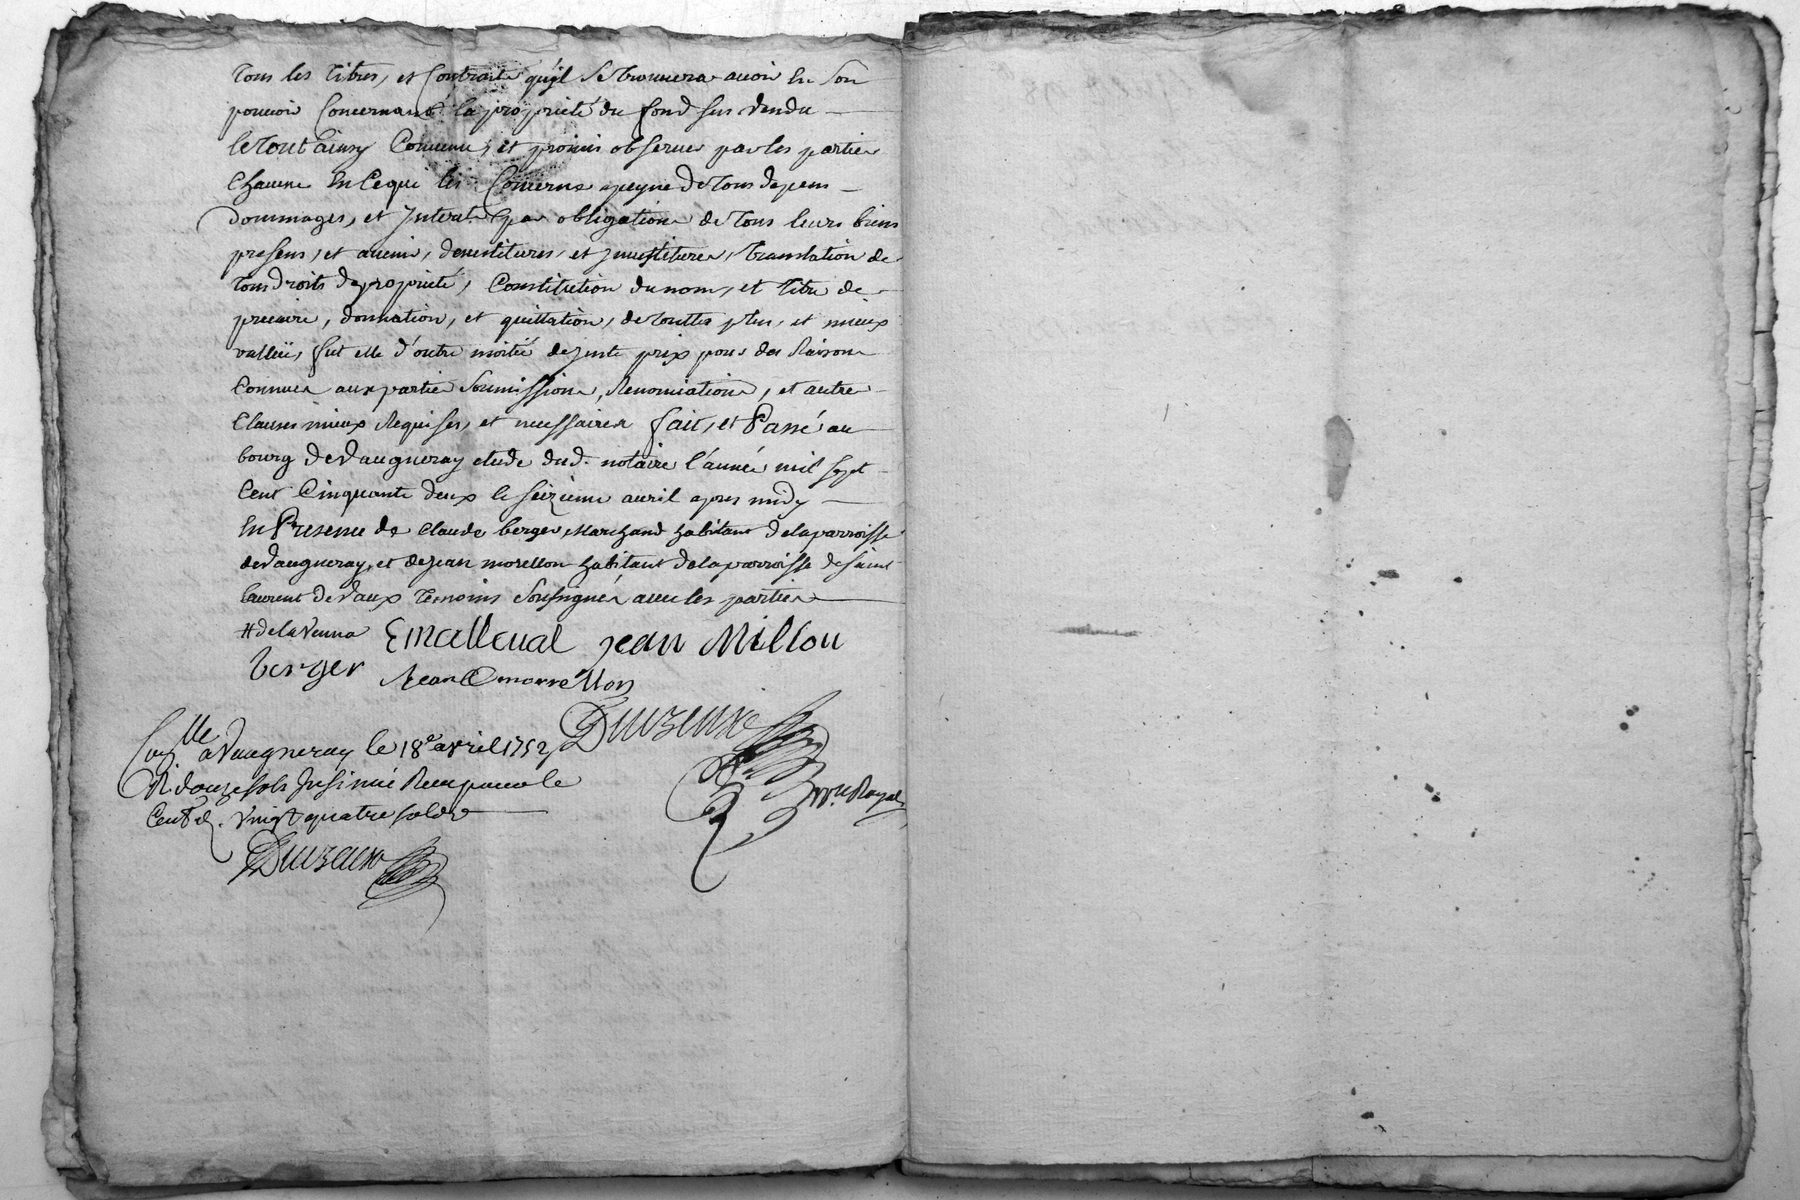 tous les titres, et Contrats qu'jl se trouvera avoir en son
pouvoir Concernant la proprieté du fond sus vendu
le tout ainsy Convenu, et promis observer par les parties
Chacune en Ce qui les Concerne apeyne de tous depens
dommages, et jnterets par obligation de tous leurs biens
presens, et avenir, devestitures, et jnvestitures, translation de
tous droits de proprieté, Constitution du nom, et titre de
precaire, donnation, et quittation, de touttes plus, et mieux
vallües, fut elle d'outre moitié de juste prix pour des Raisons
Connues aux parties soumissions, Renonciations, et autres
Clauses mieux Requises, et necessaires fait, et Passé au
bourg de Vaugneray etude dud. notaire l'année mil sept
Cent Cinquante deux le seizieme avril apres midy
En Presence de Claude berger Marchand habitant de la parroisse
de Vaugneray, et de jean morellon habitant de la parroisse de saint
laurent de Vaux temoins soussignés avec les parties
# de la Venna Emalleval jean Millou
berger Jean morrellon
Duvzeaux
à Vaugneray le 18e avril 1752
R. douze sols Insinué Reçu pour le
Cent d. vingt quatre sols
no.re Royal
Duvzeaux